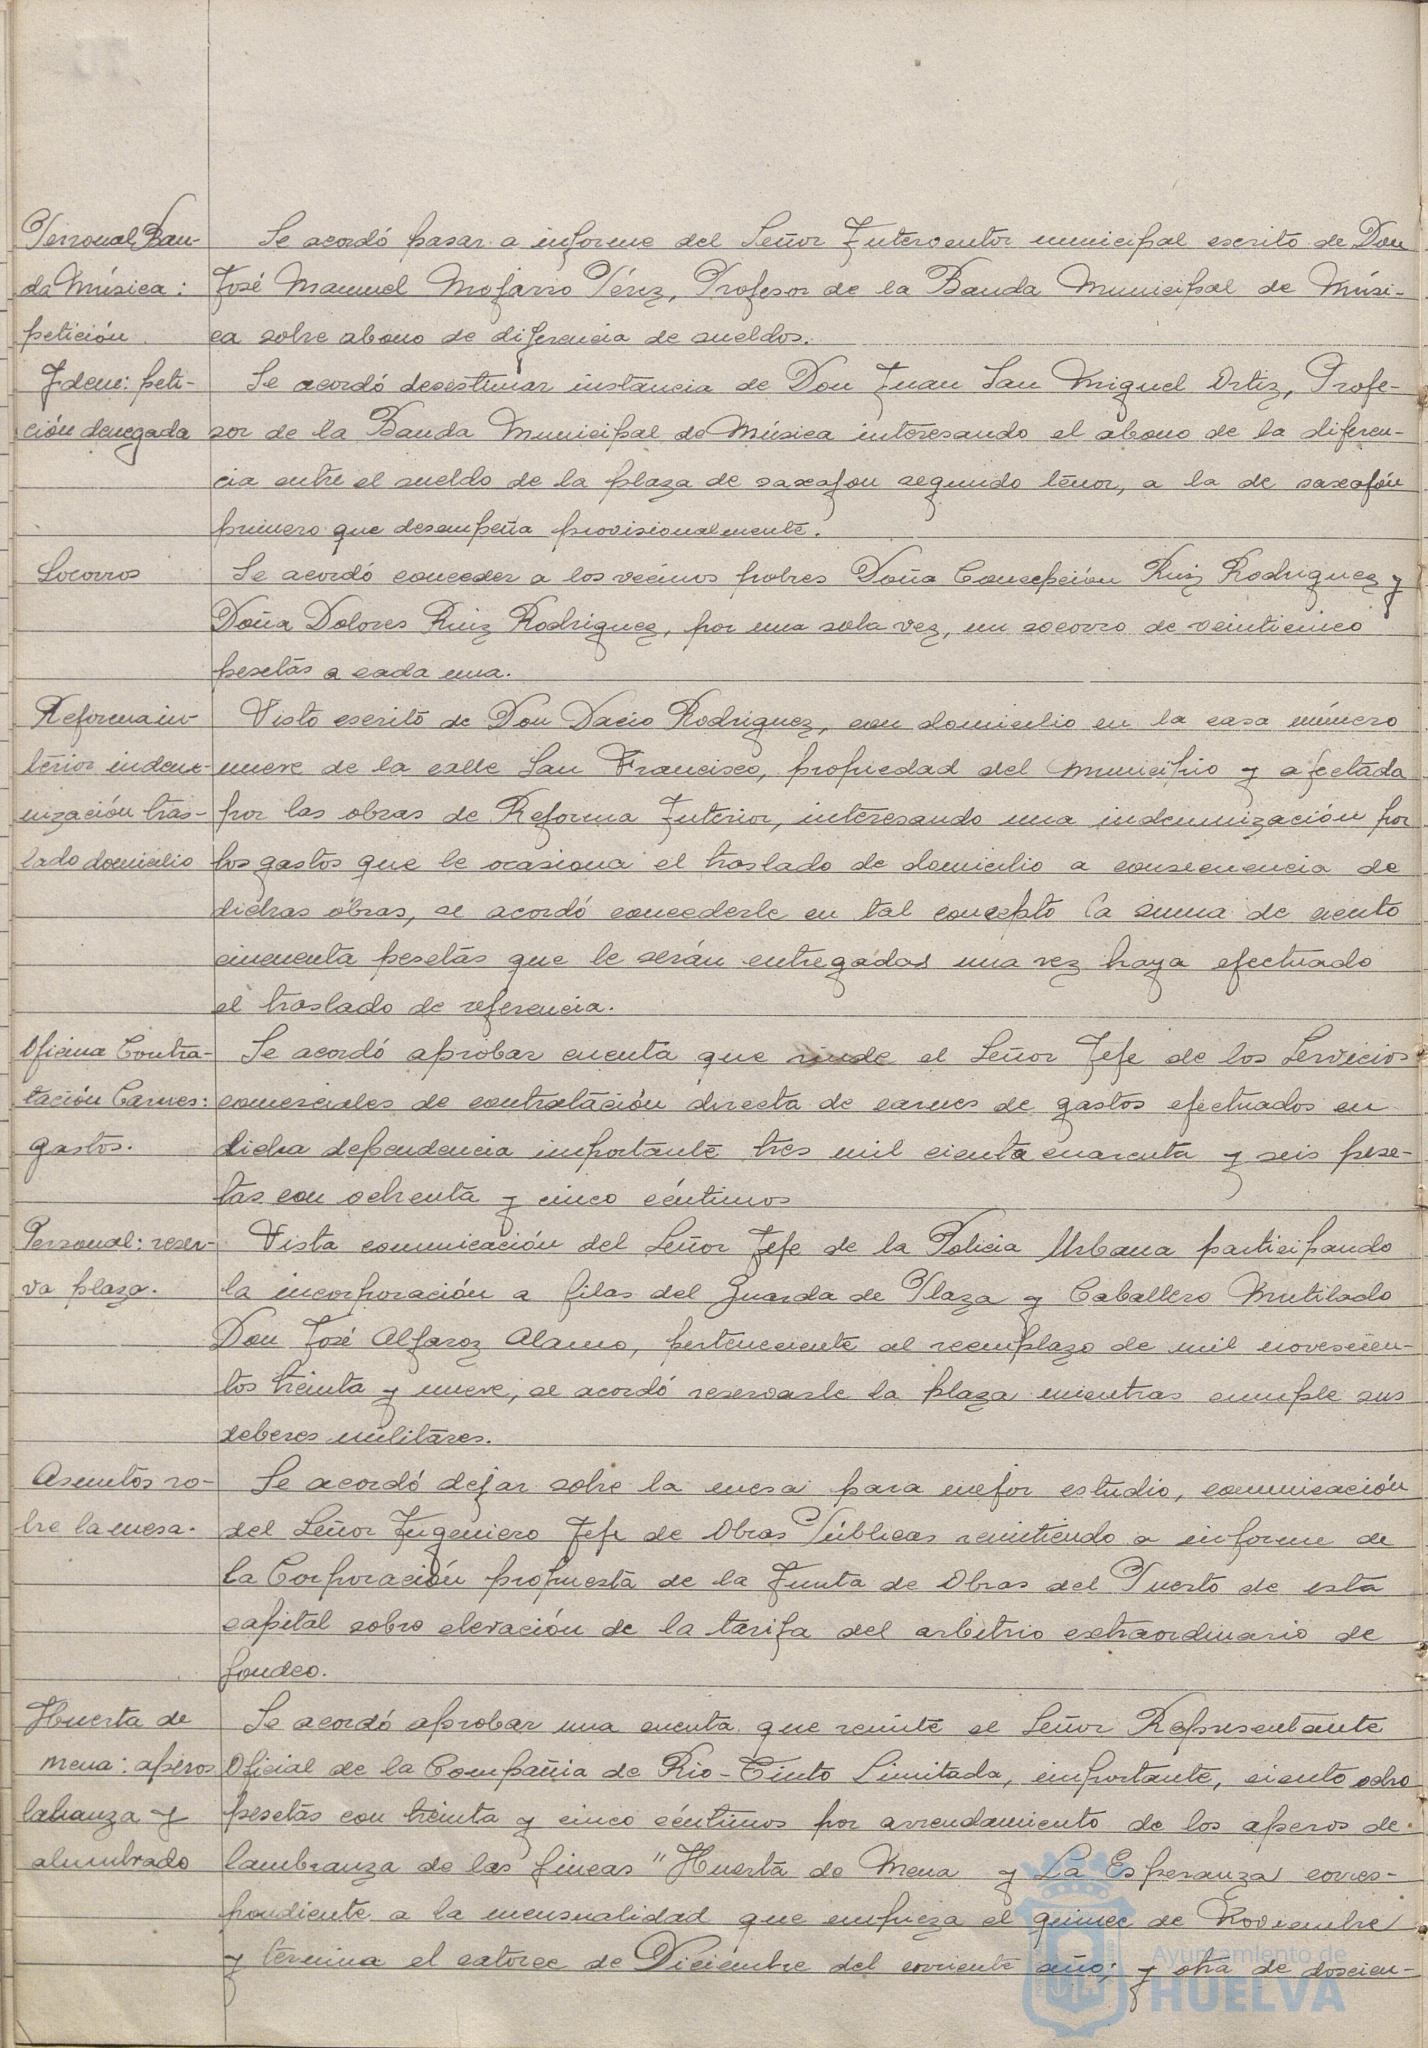 Personal Ban-
da Música:
petición.
Se acordó pasar a informe del Señor Interventor municipal escrito de Don
José Manuel Mojarro Pérez, Profesor de la Banda Municipal de Músi-
ca sobre abono de diferencia de sueldos.
Idem: peti-
ción denegada
Se acordó desestimar instancia de Don Juan San Miguel Ortiz, Profe-
sor de la Banda Municipal de Música interesando el abono de la diferen-
cia entre el sueldo de la plaza de saxafon segundo tenor, a la de saxofón
primero que desempeña provisionalmente.
Socorros
Se acordó conceder a los vecinos pobres Doña Concepción Ruiz Rodriguez y
Doña Dolores Ruiz Rodriguez, por una sola vez, un socorro de veinticinco
pesetas a cada una.
Reforma in-
terior indem-
nización tras-
lado domicilio
Visto escrito de Don Dacio Rodriguez, con domicilio en la casa número
nueve de la calle San Francisco, propiedad del Municipio y afectada
por las obras de Reforma Interior, interesando una indemnización por
los gastos que le ocasiona el traslado de domicilio a consecuencia de
dichas obras, se acordó concederle en tal concepto la suma de ciento
cincuenta pesetas que le serán entregadas una vez haya efectuado
el traslado de referencia.
Oficina Contra-
tación Carnes:
gastos.
Se acordó aprobar cuenta que rinde el Señor Jefe de los Servicios
comerciales de contratación directa de carnes de gastos efectuados en
dicha dependencia importante tres mil ciento cuarenta y seis pese-
tas con ochenta y cinco céntimos
Personal: reser-
va plaza.
Vista comunicación del Señor Jefe de la Policia Urbana participando
la incorporación a filas del Guarda de Plaza y Caballero Mutilado
Don José Alfaroz Alamo, perteneciente al reemplazo de mil novecien-
tos treinta y nueve, se acordó reservarle la plaza mientras cumple sus
deberes militares.
Asuntos so-
bre la mesa.
Se acordó dejar sobre la mesa para mejor estudio, comunicación
del Señor Ingeniero Jefe de Obras Públicas remitiendo a informe de
la Corporación propuesta de la Junta de Obras del Puerto de esta
capital sobre elevación de la tarifa del arbitrio extraordinario de
fondeo.
Huerta de
Mena: aperos
labranza y
alumbrado
Se acordó aprobar una cuenta que remite el Señor Representante
Oficial de la Compañia de Rio-Tinto Limitada, importante, ciento ocho
pesetas con treinta y cinco céntimos por arrendamiento de los aperos de
lambranza de las fincas "Huerta de Mena y La Esperanza corres-
pondiente a la mensualidad que empieza el quince de Noviembre
y termina el catorce de Diciembre del corriente año; y otra de doscien-
Ayuntamiento de
HUELVA